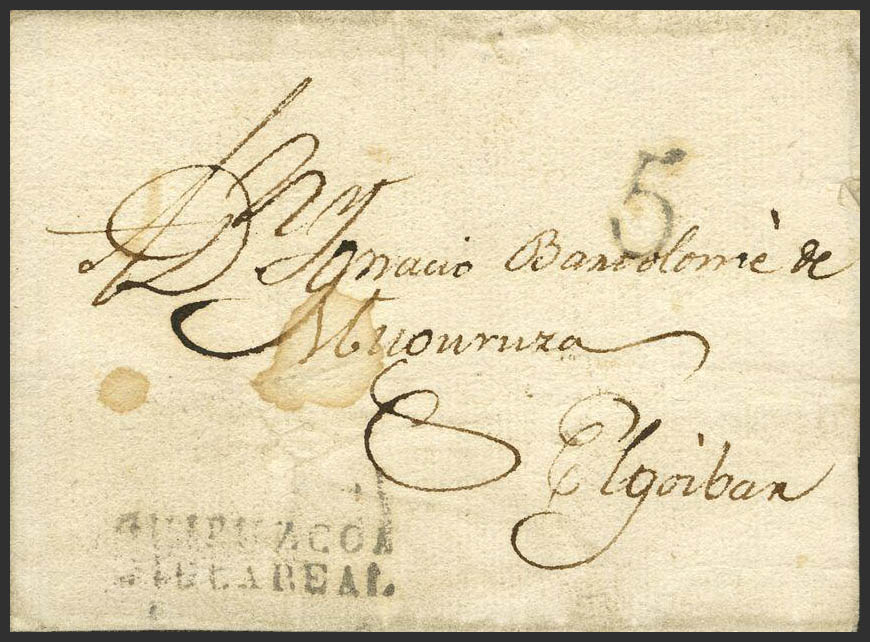 5
A Dn Ygnacio Bartolomè de
Muguruza
Elgòibar
GUIPUZCOA
VILLAREAL